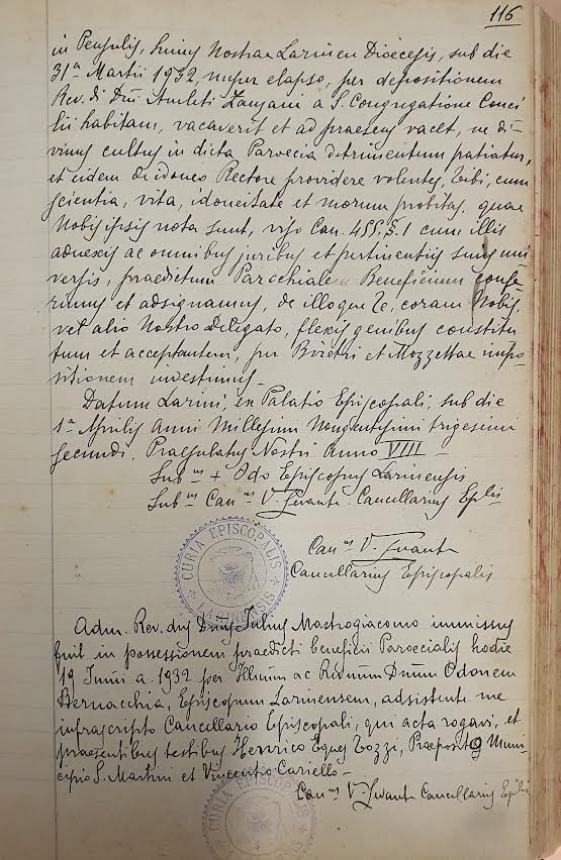 116
in Pensilis, hujus Nostrae Larinen Dioecesis, sub die
31ª Martii 1932, nuper elapso, per depositionem
Rev.di Dni Amleti a S. Congregatione Conci
lii habitam, vacaverit et ad praesens vacet, ne di-
vinus cultus in dicta Paroecia detrimentum patiatur,
et eidem de idoneo Rectore providere volentes, Tibi, cum
scientia, vita, idoneitate et morum probitas, quae
Nobis ipsis nota sunt, viso Can. 455, §. 1 cum illis
adnexis ac omnibus juribus et pertinentiis suis uni
versis, praedictum Parochiale Beneficium confe-
rimus et adsignamus, de illoque Te, coram Nobis,
vel alio Nostro delegato, flexis genibus constitu
tum et acceptantem, per Biretri et Mozzettae impo-
sitionem investimus.-
Datum Larini, ex Palatio Episcopali, sub die
1ª Aprilis Anni Millesimi Nongentesimi trigesimi
secundi. Praesulatus Nostri Anno VIII -
Sub.us + Odo Episcopus Larinensis
Sub.us Can.us V. Cancellarius Eplis
Can.us V.
Cancellarius Episcopalis
CURIA EPISCOPALIS
LARINENSIS
Adm. Rev. dnus Dnus Julius Mastrogiacomo immissus
fuit in possessionem praedicti beneficii Paroecialis hodie
19 Junii a. 1932 per Illmum ac Rvdmum Dnum Odonem
Bernacchia, Episcopum Larinensem, adsistente me
infrascripto Cancellario Episcopali, qui acta rogavi, et
praesentibus testibus Henrico Eques Tozzi, Praeposito Muni-
cipio S. Martini et Vincentio Cariello -
Can.us V. Cancellarius Eplis
CURIA EPISCOPALIS